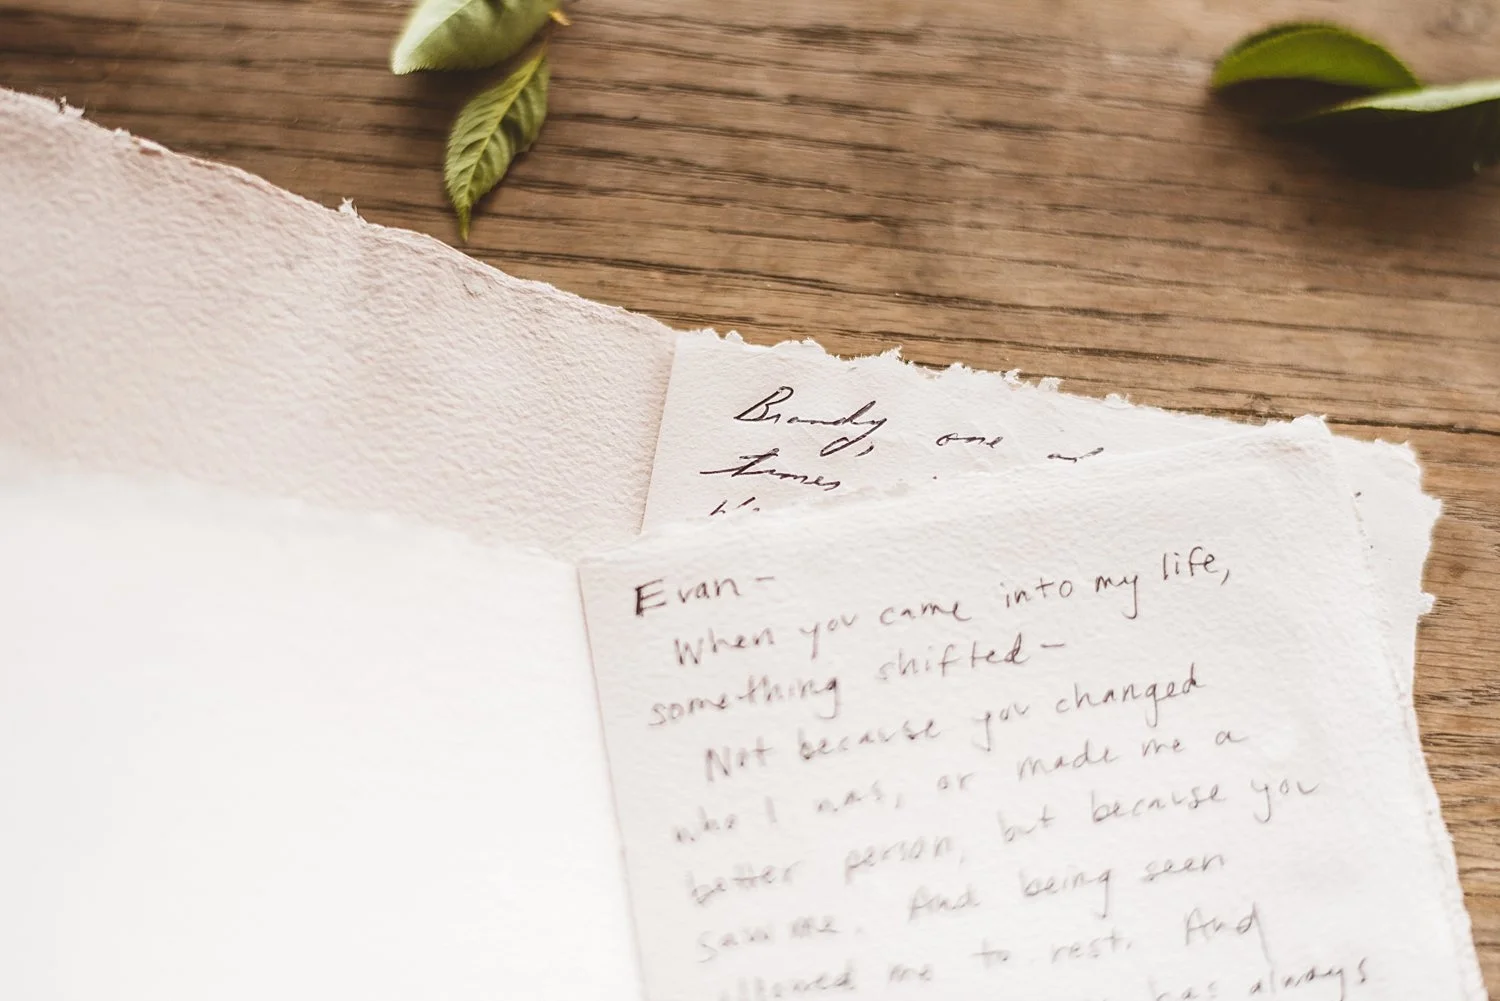 Brandy, one
times
Evan-
When you came into my life,
something shifted-
Not because you changed
who I was, or made me a
better person, but because you
saw me. And being seen
allowed me to rest. And
has always